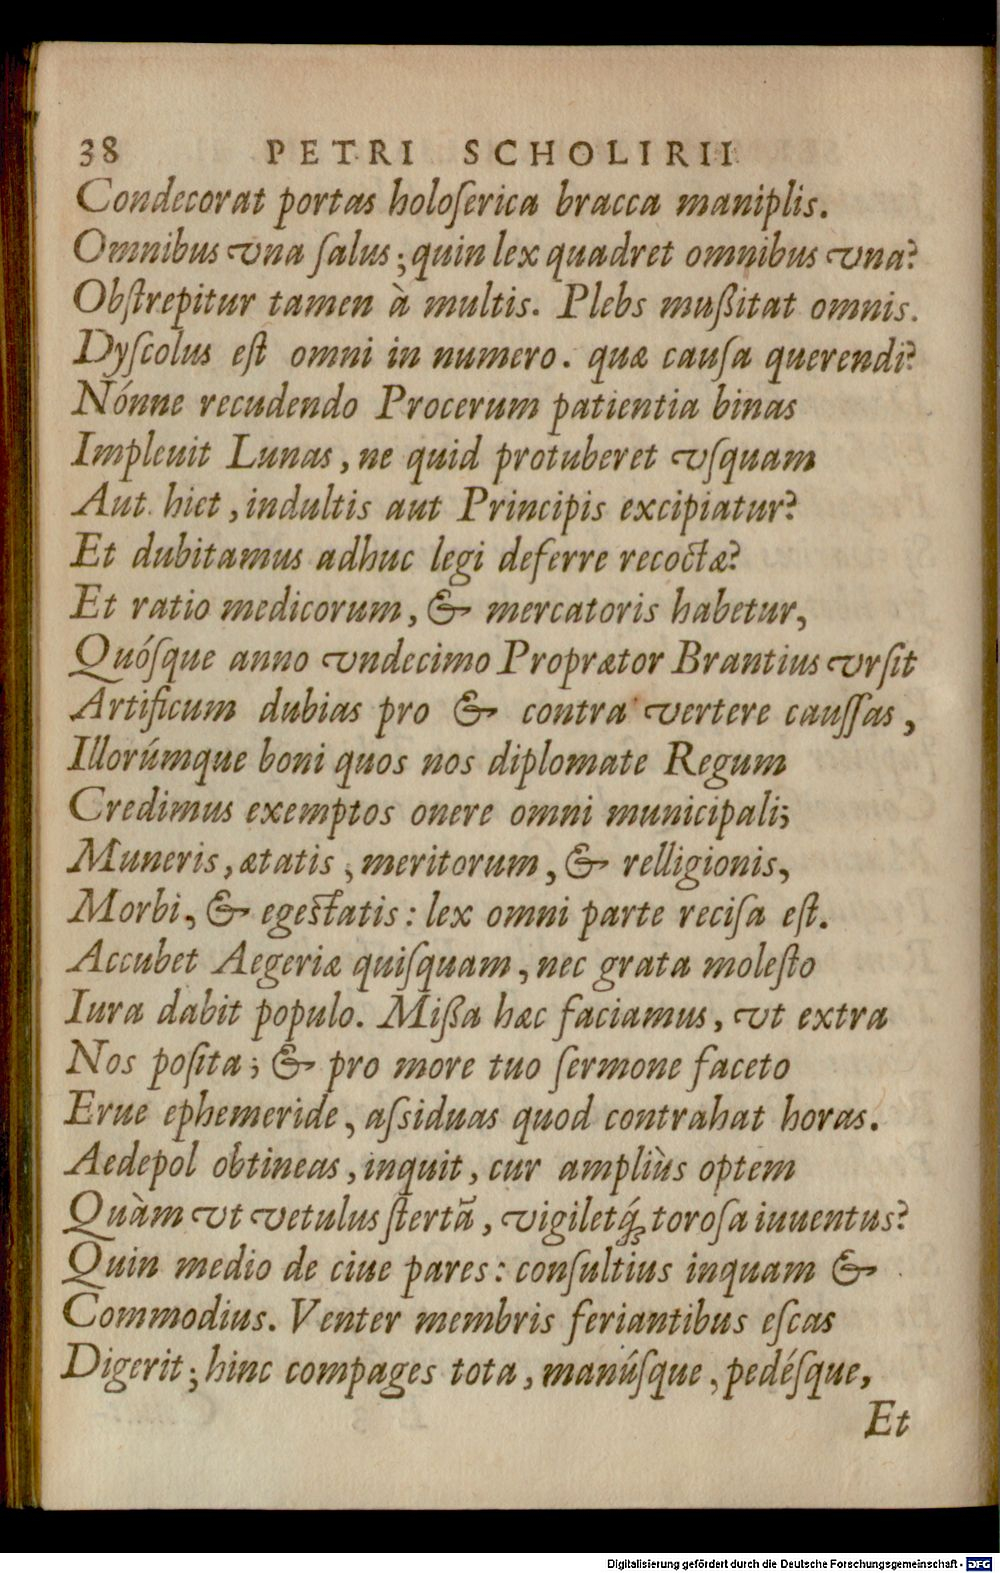 38 PETRI SCHOLIRII
Condecorat portas holoſerica bracca maniplis.
Omnibus vna ſalus; quin lex quadret omnibus vna?
Obſtrepitur tamen à multis. Plebs mußitat omnis.
Dyſcolus eſt omni in numero. quæ cauſa querendi?
Nónne recudendo Procerum patientia binas
Impleuit Lunas, ne quid protuberet vſquam
Aut hiet, indultis aut Principis excipiatur?
Et dubitamus adhuc legi deferre recoctæ?
Et ratio medicorum, & mercatoris habetur,
Quóſque anno vndecimo Proprætor Brantius vrſit
Artificum dubias pro & contra vertere cauſſas,
Illorúmque boni quos nos diplomate Regum
Credimus exemptos onere omni municipali;
Muneris, ætatis, meritorum, & relligionis,
Morbi, & egeſtatis: lex omni parte reciſa eſt.
Accubet Aegeriæ quiſquam, nec grata moleſto
Iura dabit populo. Mißa hæc faciamus, vt extra
Nos poſita; & pro more tuo ſermone faceto
Erue ephemeride, aſsiduas quod contrahat horas.
Aedepol obtineas, inquit, cur ampliùs optem
Quàm vt vetulus ſtertã, vigiletq́; toroſa iuuentus?
Quin medio de ciue pares: conſultius inquam &
Commodius. Venter membris feriantibus eſcas
Digerit; hinc compages tota, manúſque, pedéſque,
Et
Digitalisierung gefördert durch die Deutsche Forschungsgemeinschaft - DFG